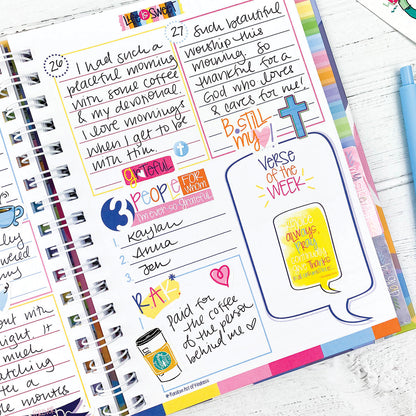 LIFE IS SWEET
26
I had such a
peaceful morning
with some coffee
& my devotional.
I love mornings
when I get to be
with Him.
27
Such beautiful
worship this
morning. So
thankful for a
God who loves
& cares for me!
B. STILL
my
grateful
3 PEOPLE FOR whom
I'm ever so Grateful
1. Kaylan
2. Anna
3. Jen
VERSE OF
THE
WEEK
always
pray
thanks
R.A.K
Paid for
the coffee
of the person
behind me ♡
out with
right. It
much
atching
a
e months